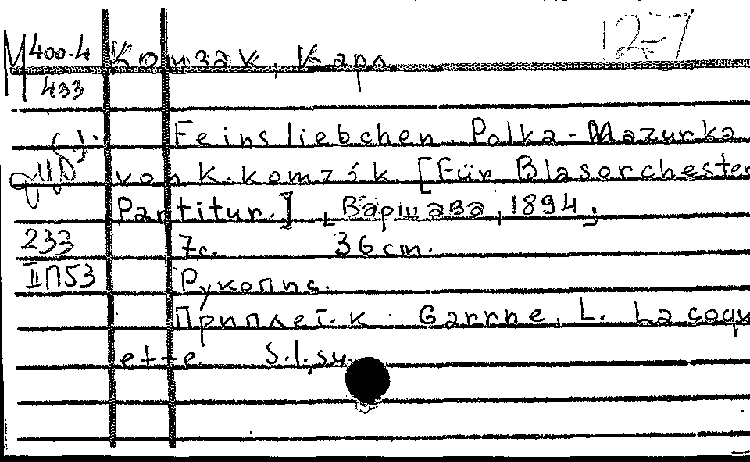 12-7
М 400-4 Комзак, Карл.
433
Feinsliebchen. Polka-Mazurka
von K. Komzák [Für Blasorchester
Partitur.], Варшава, 1894;
233 7с. 36 cm.
II П53 Рукопис.
Приплет. к: Ganne, L. La coqu
ette S.l., s.a.